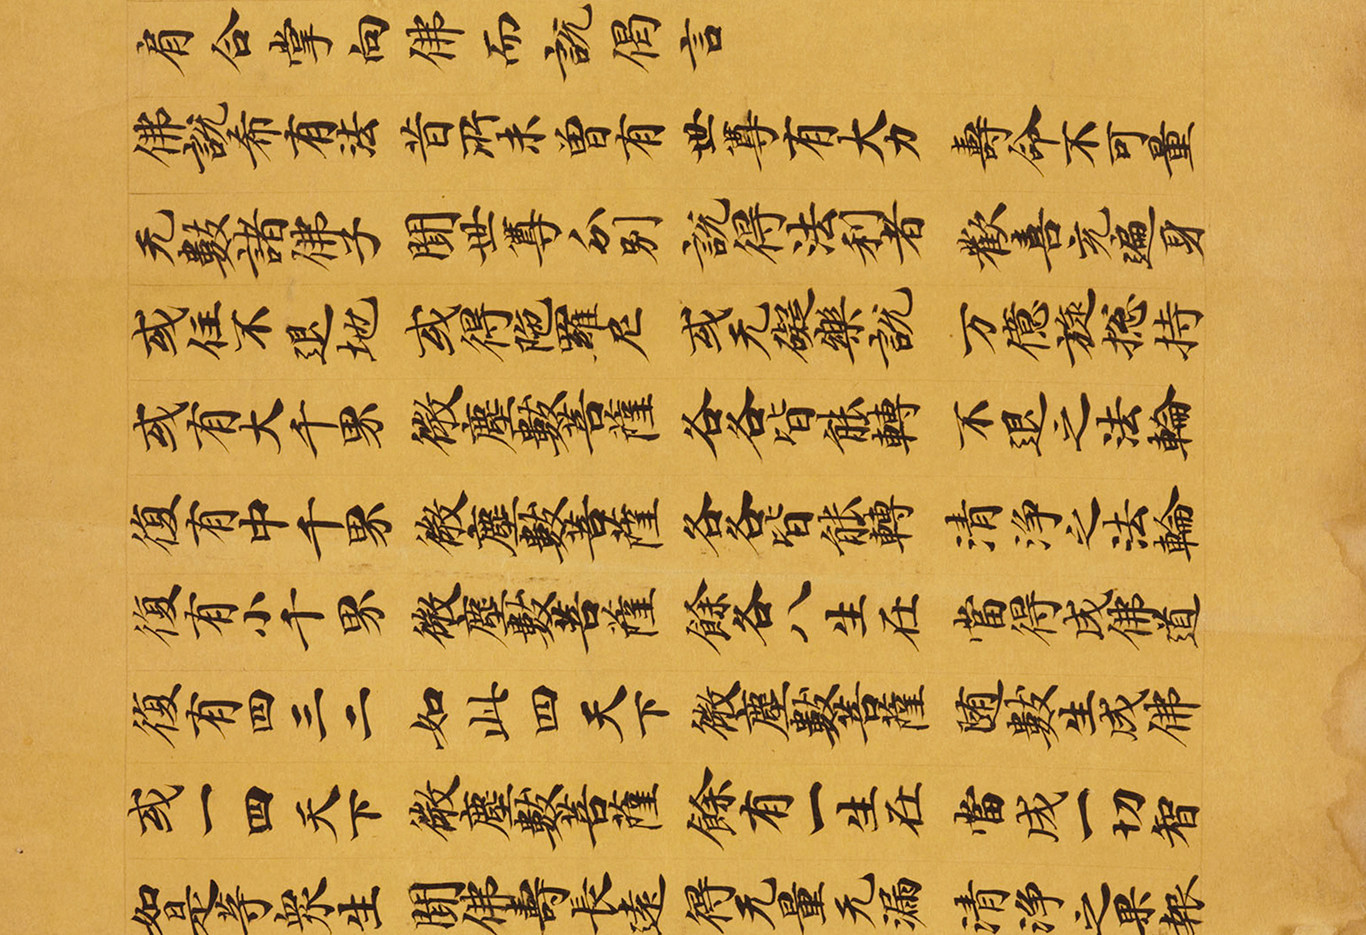 肩合掌向佛而說偈言
佛說希有法 昔所未曾有 世尊有大力 壽命不可量
无數諸佛子 聞世尊分別 說得法利者 歡喜充遍身
或住不退地 或得陁羅尼 或无礙樂說 万億旋揔持
或有大千界 微塵數菩薩 各各皆能轉 不退之法輪
復有中千界 微塵數菩薩 各各皆能轉 清淨之法輪
復有小千界 微塵數菩薩 餘各八生在 當得成佛道
復有四三二 如此四天下 微塵數菩薩 隨數生成佛
或一四天下 微塵數菩薩 餘有一生在 當成一切智
如是等眾生 聞佛壽長遠 得无量无漏 清淨之果報